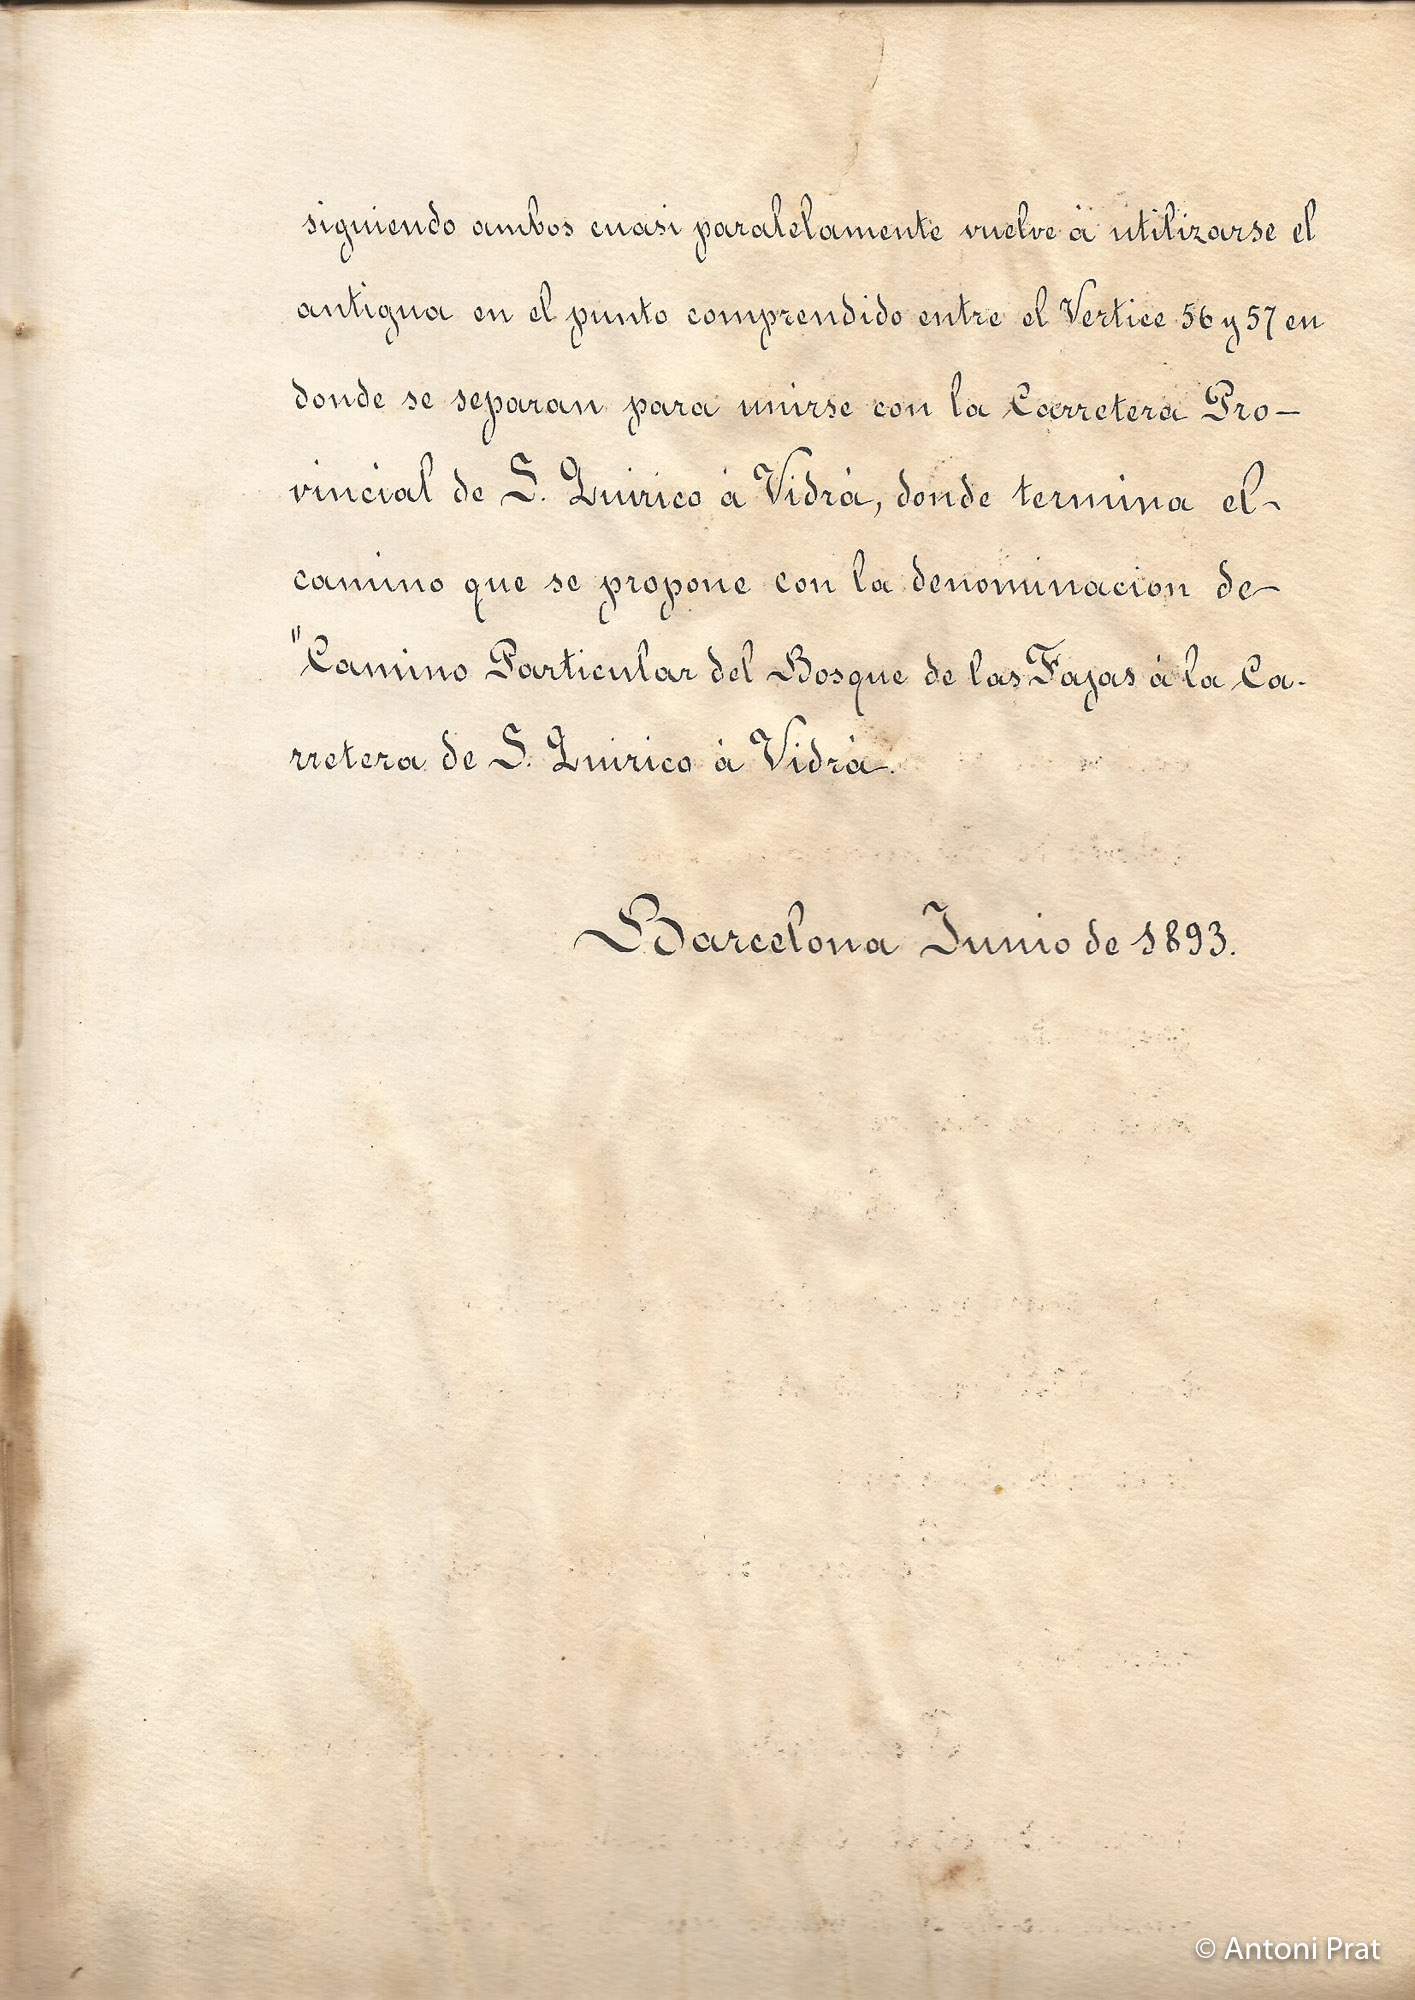 siguiendo ambos cuasi paralelamente vuelve á utilizarse el
antigua en el punto comprendido entre el Vertice 56 y 57 en
donde se separan para unirse con la Carretera Pro-
vincial de S. Quirico á Vidrá, donde termina el
camino que se propone con la denominacion de
"Camino Particular del Bosque de las Fajas á la Ca-
rretera de S. Quirico á Vidrá.
Barcelona Junio de 1893.
© Antoni Prat